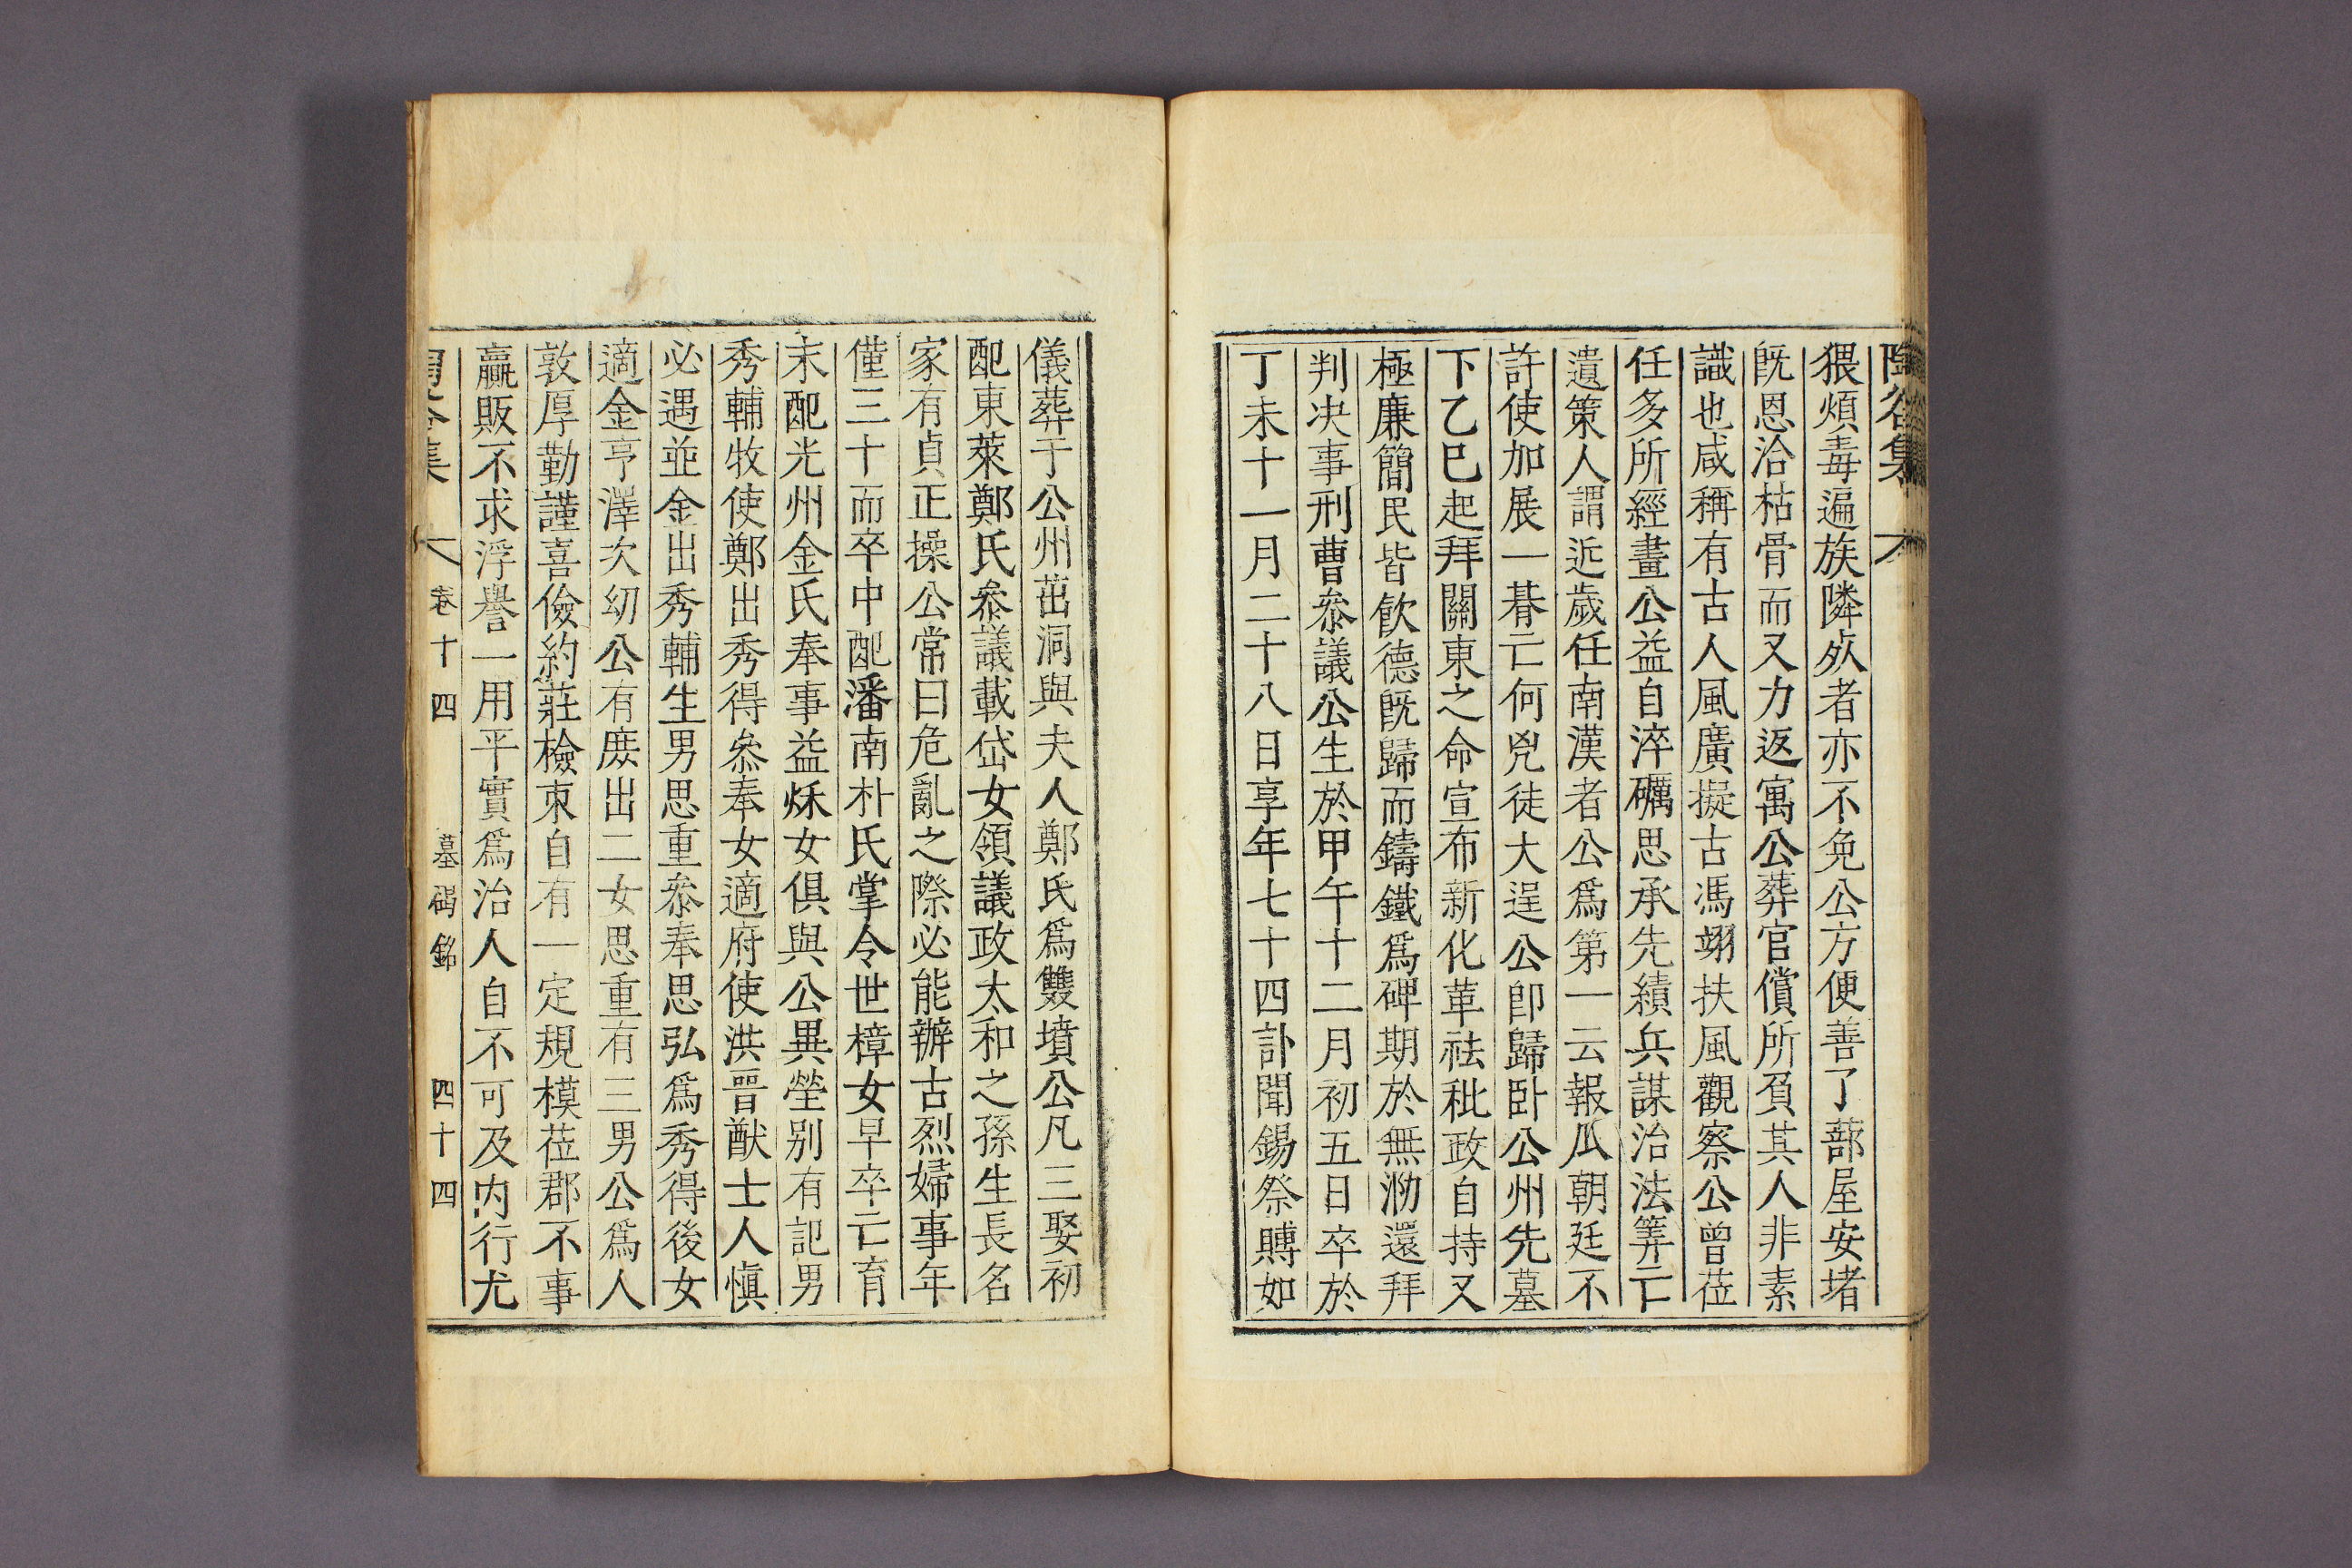 陶谷集
猥煩毒遍族隣死者亦不免公方便善了蔀屋安堵
旣恩洽枯骨而又力返寓公葬官償所負其人非素
識也咸稱有古人風廣擬古馮翊扶風觀察公曾莅
任多所經畫公益自淬礪思承先績兵謀治法筭亡
遺策人謂近歲任南漢者公爲第一云報瓜朝廷不
許使加展一朞亡何兇徒大逞公卽歸卧公州先墓
下乙巳起拜關東之命宣布新化革祛秕政自持又
極廉簡民皆飮德旣歸而鑄鐵爲碑期於無泐還拜
判决事刑曹叅議公生於甲午十二月初五日卒於
丁未十一月二十八日享年七十四訃聞錫祭賻如
儀葬于公州茁洞與夫人鄭氏爲雙墳公凡三娶初
配東萊鄭氏叅議載岱女領議政太和之孫生長名
家有貞正操公常曰危亂之際必能辦古烈婦事年
僅三十而卒中配潘南朴氏掌令世樟女早卒亡育
末配光州金氏奉事益烌女俱與公異塋别有記男
秀輔牧使鄭出秀得叅奉女適府使洪晋猷士人愼
必遇並金出秀輔生男思重叅奉思弘爲秀得後女
適金亨澤次幼公有庶出二女思重有三男公爲人
敦厚勤謹喜儉約莊檢朿自有一定規模莅郡不事
贏販不求浮譽一用平實爲治人自不可及内行尤
陶谷集 卷十四 墓碣銘 四十四